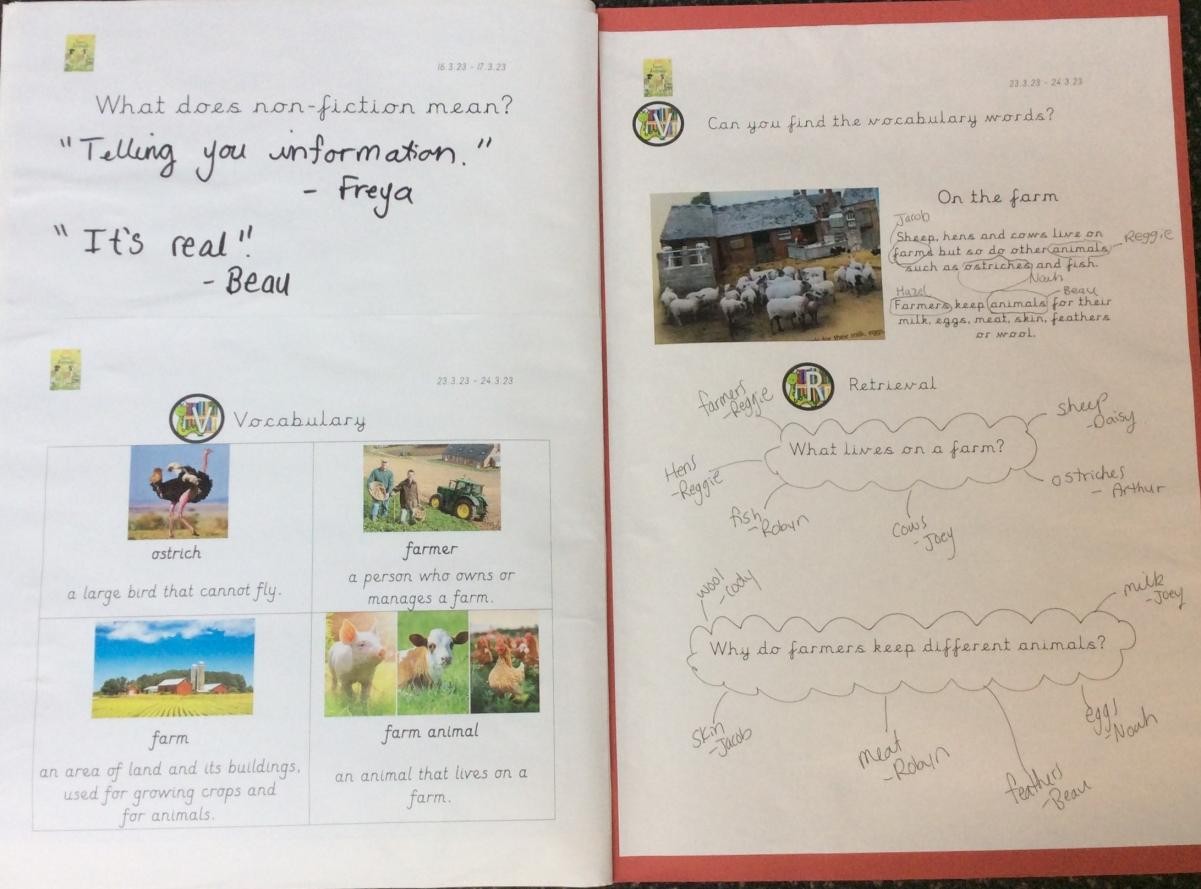 16.3.23 - 17.3.23
What does non-fiction mean?
"Telling you information."
- Freya
"It's real".
- Beau
23.3.23 - 24.3.23
V
Vocabulary
ostrich
a large bird that cannot fly.
farmer
a person who owns or
manages a farm.
farm
an area of land and its buildings,
used for growing crops and
for animals.
farm animal
an animal that lives on a
farm.
23.3.23 - 24.3.23
V
Can you find the vocabulary words?
On the farm
Jacob
Sheep, hens and cows live on
farms but so do other animals
- Reggie
such as ostriches and fish.
Noah
Hazel
Beau
Farmers keep animals for their
milk, eggs, meat, skin, feathers
or wool.
for their milk, eggs
R
Retrieval
farmers
- Reggie
sheep
- Daisy
What lives on a farm?
Hens
- Reggie
ostriches
- Arthur
fish
- Robyn
cows
- Joey
wool
- Cody
milk
- Joey
Why do farmers keep different animals?
skin
- Jacob
meat
- Robyn
feathers
- Beau
eggs
- Noah